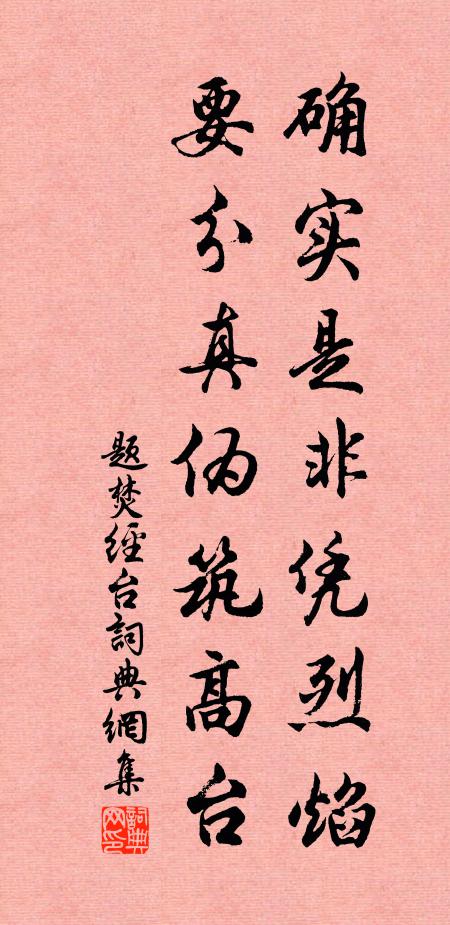 确实是非凭烈焰
要分真伪筑高台
题焚经台詞典網集
詞典网印